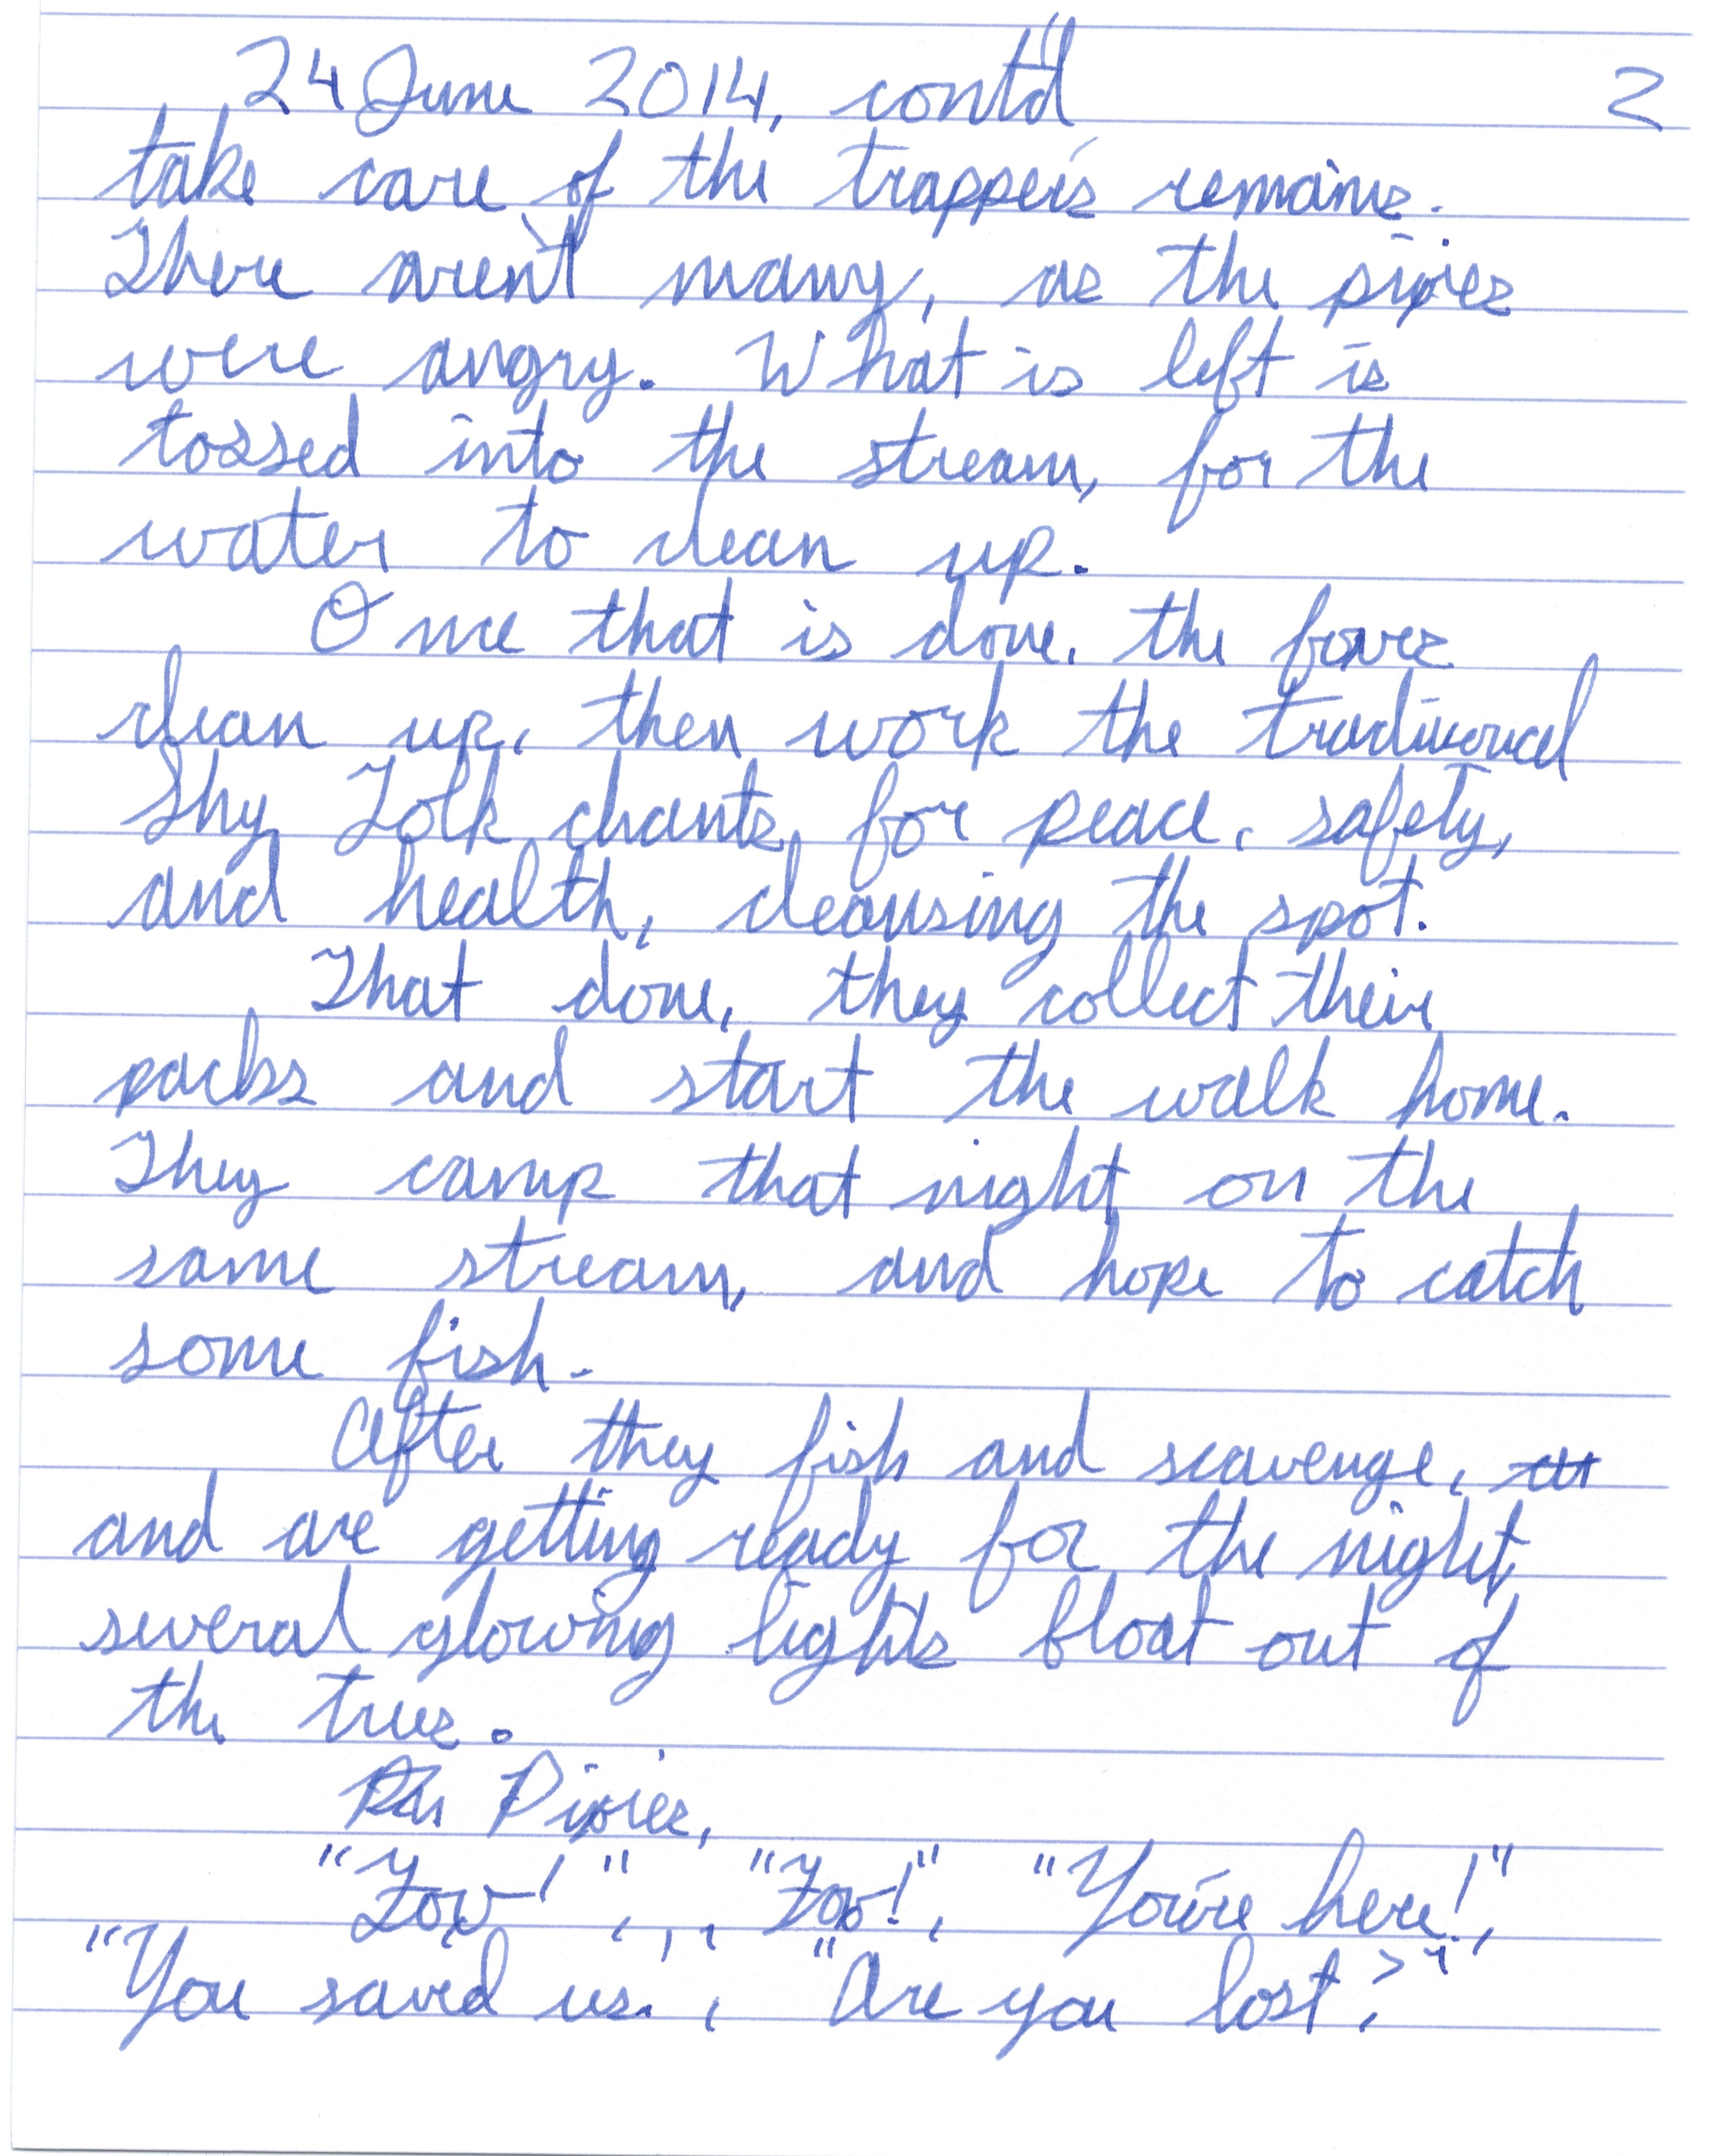 24 June 2014, cont'd 2
take care of the trapper's remains.
There aren't many, as the pixies
were angry. What is left is
tossed into the stream, for the
water to clean up.
Once that is done, the foxes
clean up, then work the traditional
Shy Folk chants for peace, safety,
and health, cleansing the spot.
That done, they collect their
packs and start the walk home.
They camp that night on the
same stream, and hope to catch
some fish.
After they fish and scavenge,
and are getting ready for the night,
several glowing lights float out of
the trees.
Pixies.
"Fox!", "Fox!", "You're here!",
"You saved us.", "Are you lost?"